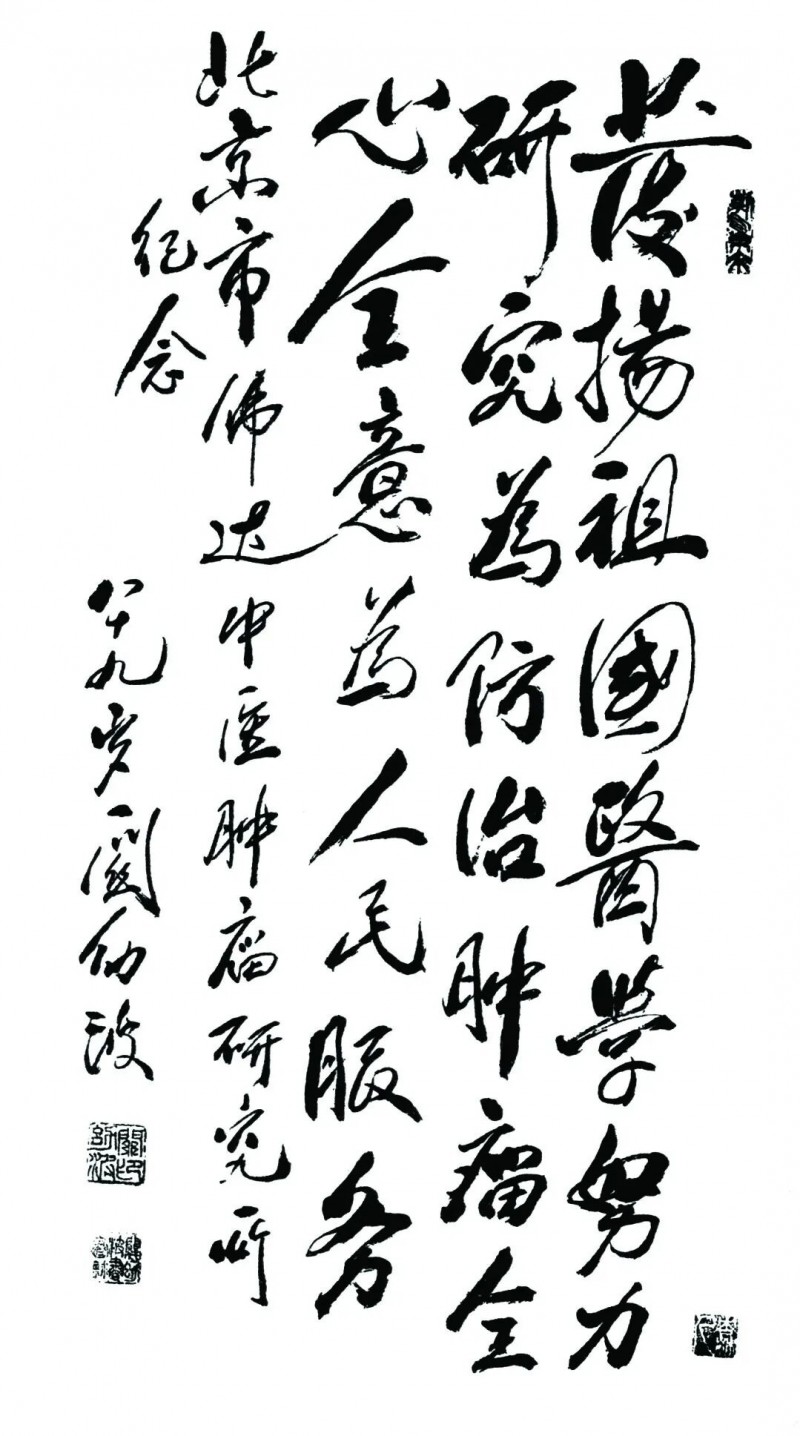 發揚祖國醫學努力
研究為防治肿瘤全
心全意為人民服务
北京市佛达中医肿瘤研究所
纪念
八十九岁關幼波
關幼波印